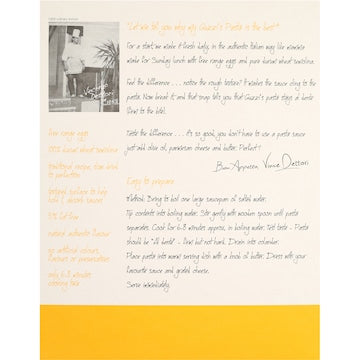 "Let me tell you why my Guzzi's Pasta is the best"
For a start we make it fresh daily, in the authentic Italian way like mamma
made for Sunday lunch with free range eggs and pure durum wheat semolina.
Feel the difference . . . notice the rough texture? It makes the sauce cling to the
pasta. Now break it and that snap tells you that Guzzi's pasta stays al dente
(firm to the bite).
Taste the difference . . . it's so good, you don't have to use a pasta sauce
just add olive oil, parmesan cheese and butter. Perfect!
Buon Appetito, Vince Dattoli
free range eggs
100% durum wheat semolina
traditional recipe, slow dried
to perfection
textured surface to help
hold & absorb sauces
97% fat free
natural authentic flavour
no artificial colours,
flavours or preservatives
only 6-8 minutes
cooking time
Easy to prepare
Method: Bring to boil one large saucepan of salted water.
Tip contents into boiling water. Stir gently with wooden spoon until pasta
separates. Cook for 6-8 minutes approx, in boiling water. Test taste - Pasta
should be "Al dente" - firm but not hard. Drain into colander.
Place pasta into warm serving dish with a knob of butter. Dress with your
favourite sauce and grated cheese.
Serve immediately.